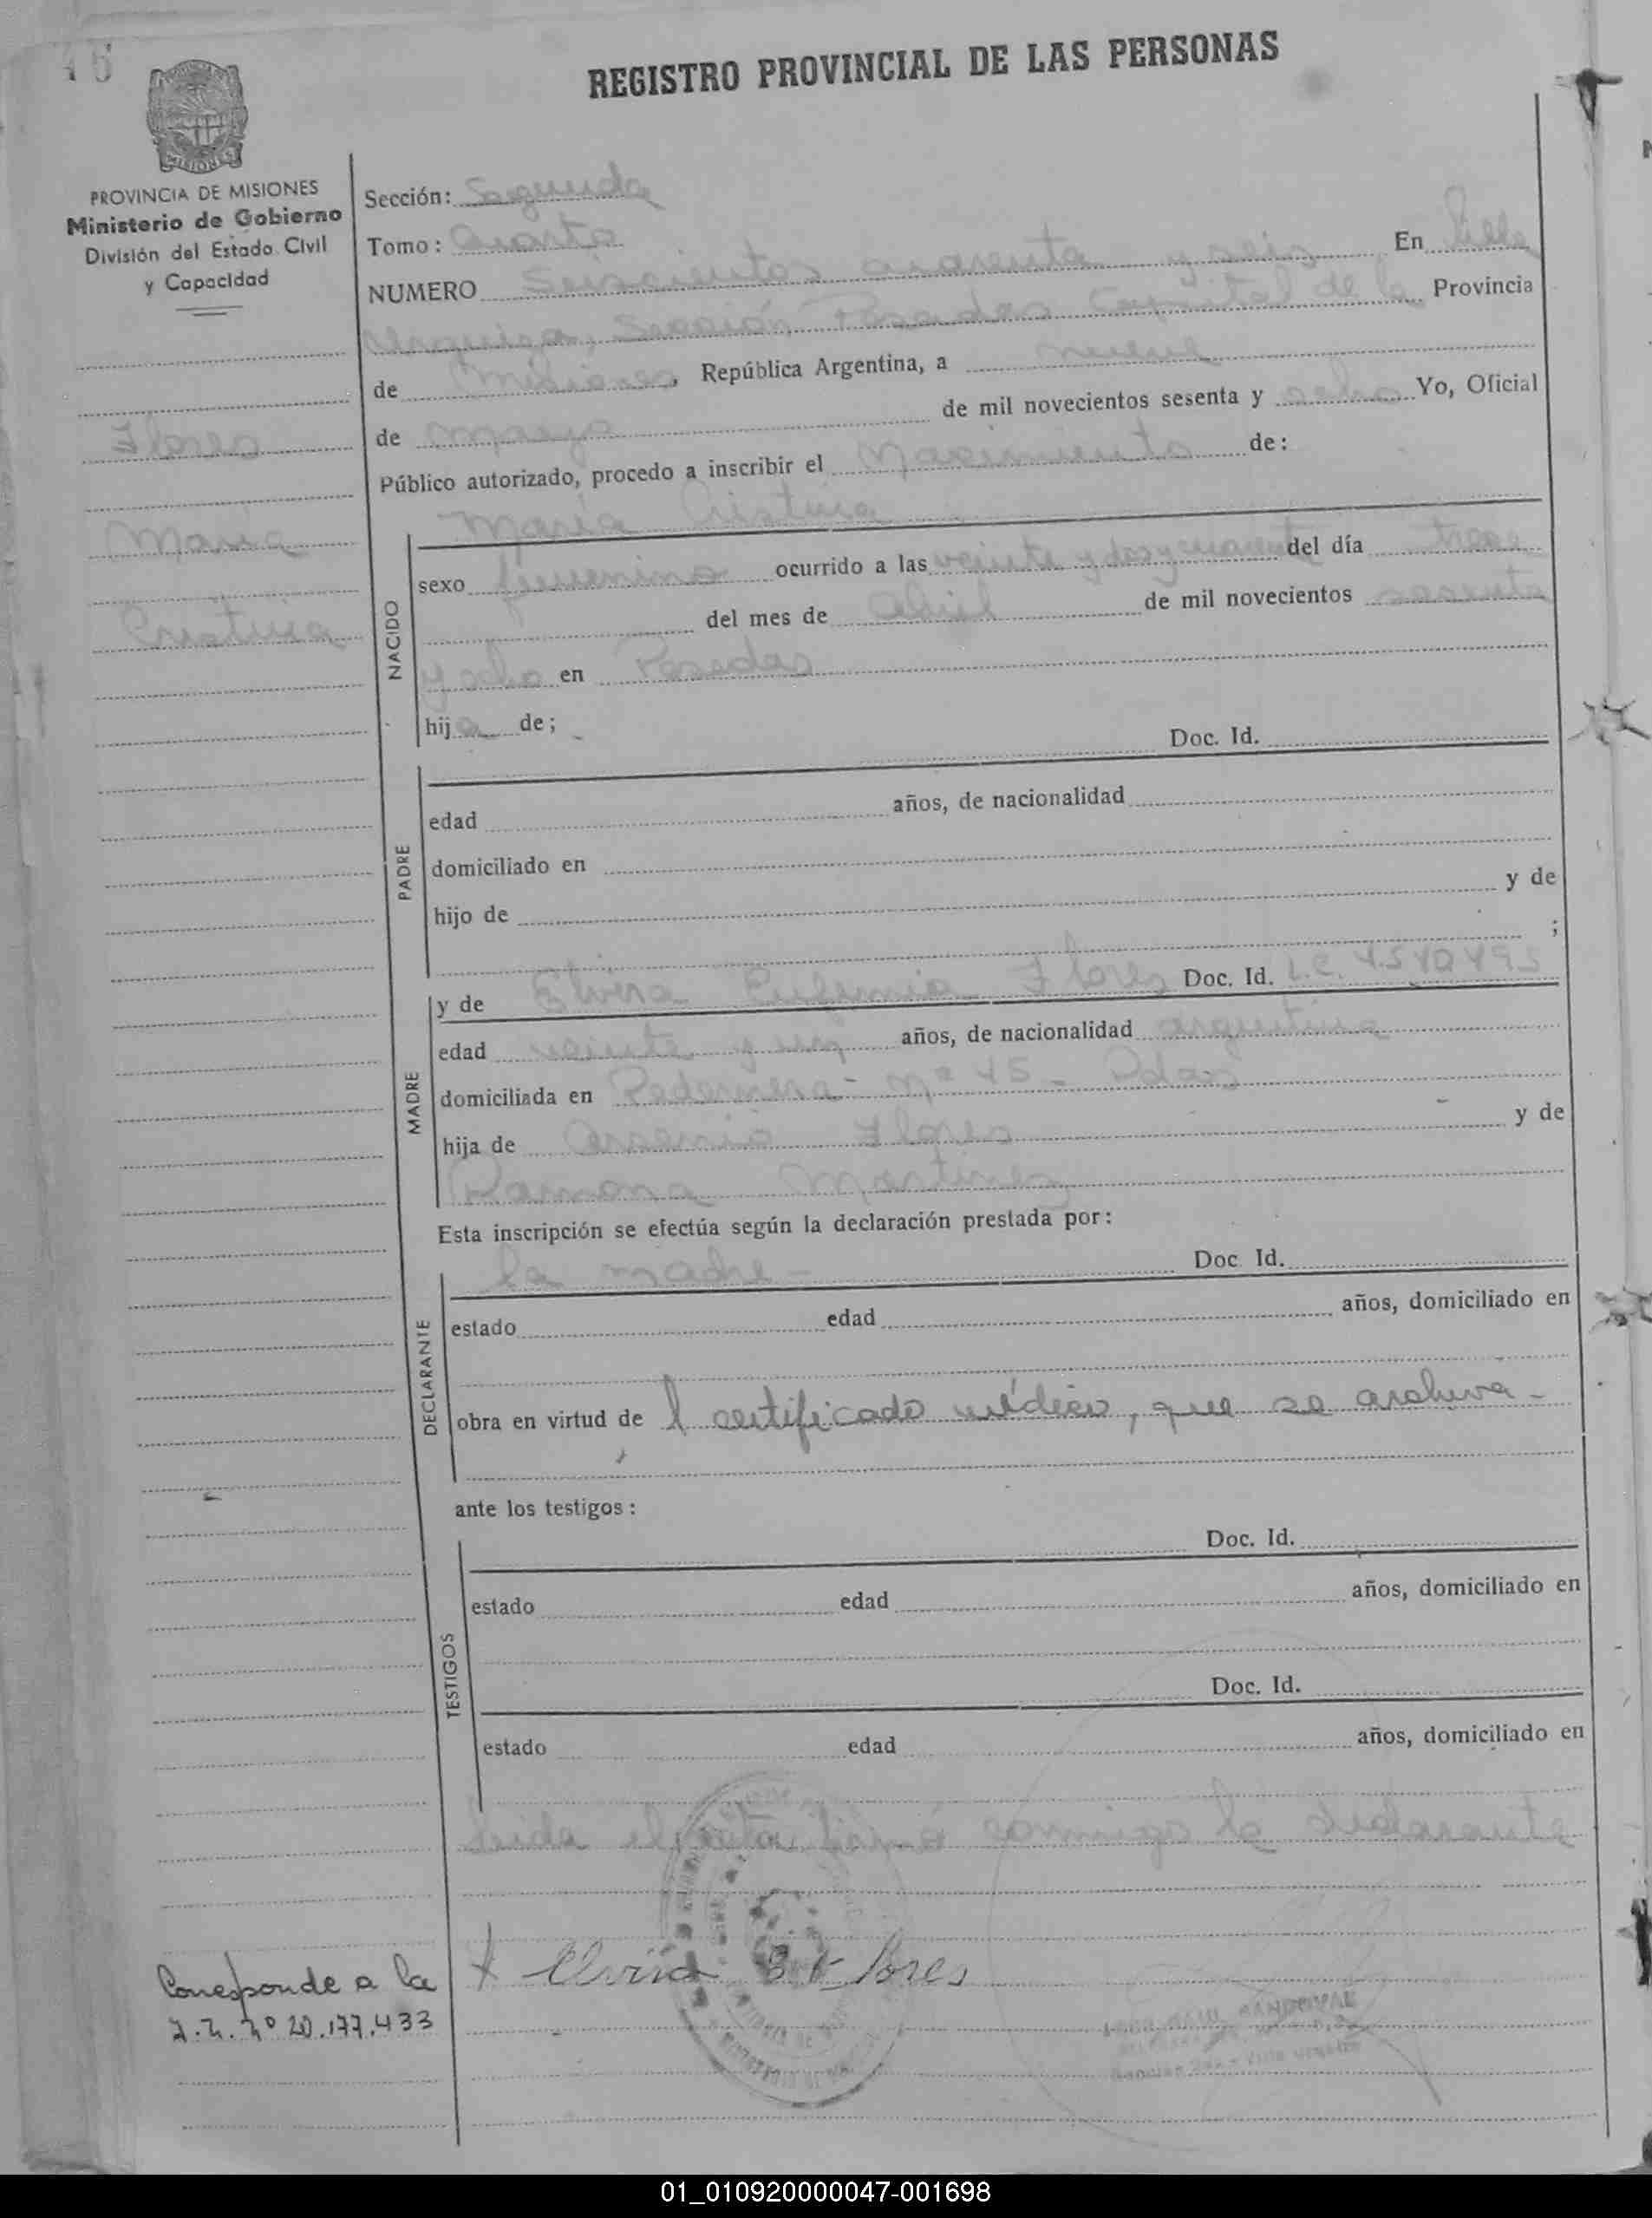 REGISTRO PROVINCIAL DE LAS PERSONAS
MISIONES
PROVINCIA DE MISIONES
Ministerio de Gobierno
División del Estado Civil
y Capacidad
Flores
María
Cristina
Sección: Segunda
Tomo: Cuarto
NUMERO Seiscientos cuarenta y seis En Villa
Urquiza, Sección Posadas Capital de la Provincia
de Misiones, República Argentina, a nueve
de Mayo de mil novecientos sesenta y ocho Yo, Oficial
Público autorizado, procedo a inscribir el Nacimiento de:
María Cristina
NACIDO
sexo femenino ocurrido a las veinte y dos y cuarenta del día trece
del mes de Abril de mil novecientos sesenta
y ocho en Posadas
hija de;
Doc. Id.
PADRE
edad años, de nacionalidad
domiciliado en
hijo de y de
;
MADRE
y de Elvira Eufemia Flores Doc. Id. L.C.
edad veinte y un años, de nacionalidad argentina
domiciliada en Pedernera - Nº 45 - Pdas
hija de Arsenio Flores y de
Ramona Martinez
Esta inscripción se efectúa según la declaración prestada por:
la madre - Doc. Id.
DECLARANTE
estado edad años, domiciliado en
obra en virtud de l certificado médico, que se archiva -
ante los testigos:
Doc. Id.
TESTIGOS
estado edad años, domiciliado en
Doc. Id.
estado edad años, domiciliado en
Leida el acta, firmó conmigo la declarante
x Elvira E Flores
SANDOVAL
Corresponde a la
Nº 20.177.433
01_010920000047-001698